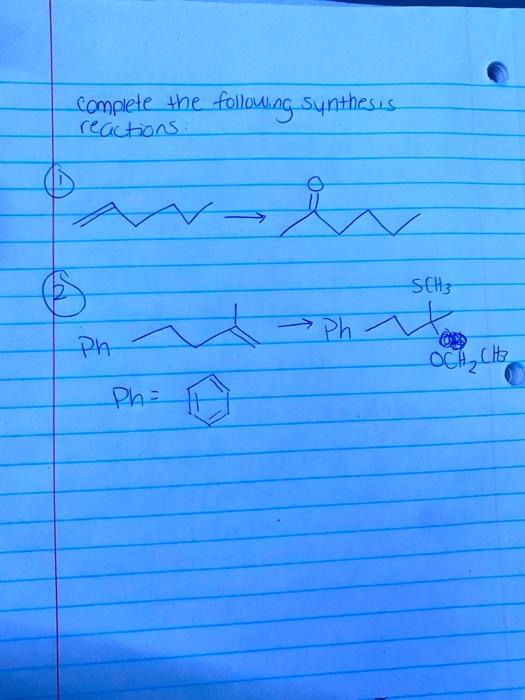 Complete the following synthesis
reactions:
1
O
2
SCH3
Ph
Ph
OCH2CH3
Ph =